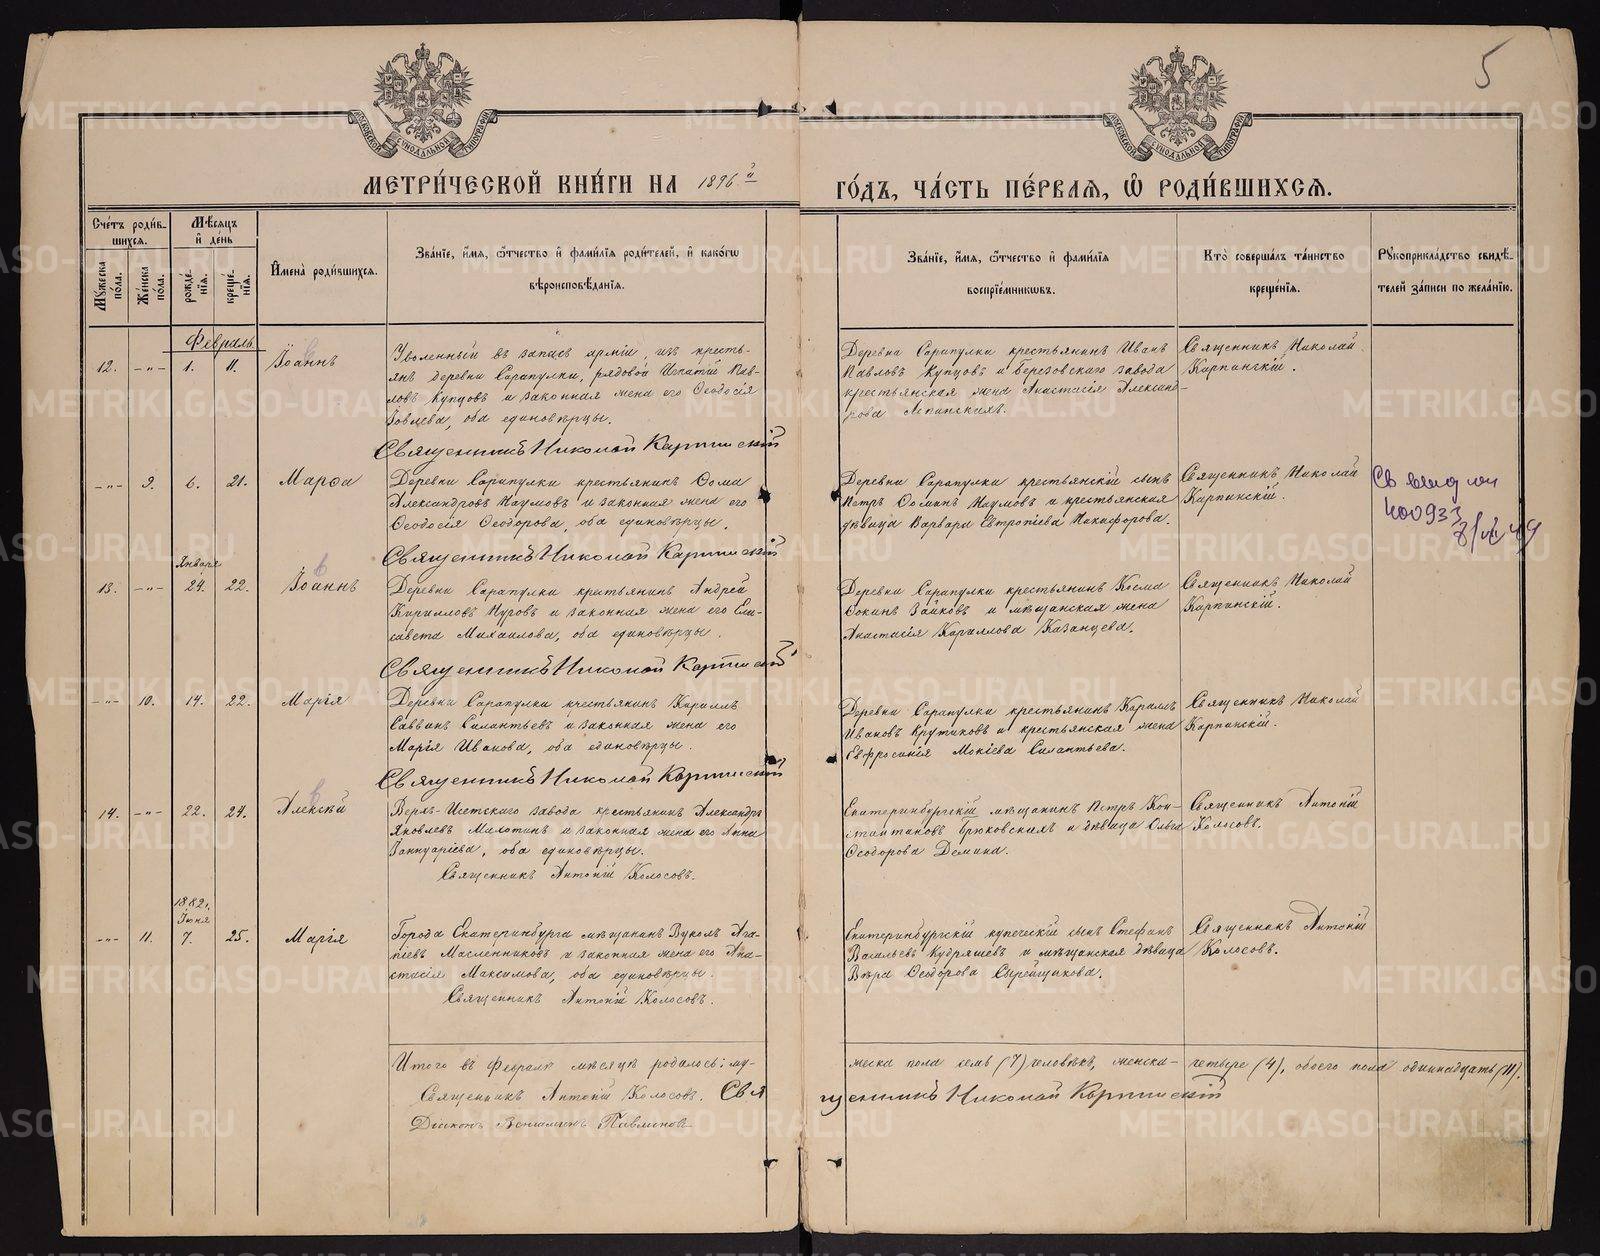 5
МОСКОВСКОЙ СѴНОДАЛЬНОЙ ТИПОГРАФІИ
МОСКОВСКОЙ СѴНОДАЛЬНОЙ ТИПОГРАФІИ
МЕТРИ́ЧЕСКОЙ КНИ́ГИ НА 1896й ГО́ДЪ, ЧА́СТЬ ПЕ́РВАѦ, Ѿ РОДИ́ВШИХСѦ.
Сче́тъ роди́в-
шихсѧ.
Мѣ́сѧцъ
и҆ де́нь
Му́жеска
по́ла.
Же́нска
по́ла.
рожде́-
нїѧ.
креще́-
нїѧ.
И҆мена̀ роди́вшихсѧ.
Зва́нїе, и҆́мѧ, ѻ҆́тчество и҆ фами́лїѧ роди́телей, и҆ како́гѡ
вѣроисповѣ́данїѧ.
Зва́нїе, и҆́мѧ, ѻ҆́тчество и҆ фами́лїѧ
воспрїе́мникѡвъ.
Кто̀ соверша́лъ та́инство
креще́нїѧ.
Рꙋкоприкла́дство свидѣ́-
телей за́писи по жела́нїю.
Февраль
12. -"- 1. 11. Іоаннъ
Уволенный въ запасъ арміи, изъ кресть-
янъ деревни Сарапулки, рядовой Игнатій Пав-
ловъ Купцовъ и законная жена его Ѳеодосія
Іовлева, оба единовѣрцы.
Священникъ Николай Карпинскій
Деревни Сарапулки крестьянинъ Иванъ
Павловъ Купцовъ и Березовскаго завода
крестьянская жена Анастасія Александ-
рова
Священникъ Николай
Карпинскій.
-"- 9. 6. 21. Марѳа
Деревни Сарапулки крестьянинъ Ѳома
Александровъ Наумовъ и законная жена его
Ѳеодосія Ѳеодорова, оба единовѣрцы.
Священникъ Николай Карпинскій
Деревни Сарапулки крестьянскій сынъ
Петръ Ѳоминъ Наумовъ и крестьянская
дѣвица Варвара Никифорова.
Священникъ Николай
Карпинскій.
400933
Января
13. -"- 24. 22. Іоаннъ
Деревни Сарапулки крестьянинъ Андрей
Кирилловъ и законная жена его Ели-
савета Михаилова, оба единовѣрцы.
Священникъ Николай Карпинскій
Деревни Сарапулки крестьянинъ Косма
Зайковъ и мѣщанская жена
Анастасія Кириллова Казанцева.
Священникъ Николай
Карпинскій.
-"- 10. 14. 22. Марія
Деревни Сарапулки крестьянинъ Кириллъ
Саввинъ Силантьевъ и законная жена его
Марія Иванова, оба единовѣрцы.
Священникъ Николай Карпинскій
Деревни Сарапулки крестьянинъ Кириллъ
Ивановъ Крутиковъ и крестьянская жена
Евфросинія Мокіева Силантьева.
Священникъ Николай
Карпинскій.
14. -"- 22. 24. Алексій
Верхъ-Исетскаго завода крестьянинъ Александръ
Яковлевъ Махотинъ и законная жена его Анна
Іаннуаріева, оба единовѣрцы.
Священникъ Антоній Колосовъ.
Екатеринбургскій мѣщанинъ Петръ Кон-
стантиновъ и дѣвица Ольга
Ѳеодорова Демина.
Священникъ Антоній
Колосовъ.
1882 г.
Іюня
-"- 11. 7. 25. Марія
Города Екатеринбурга мѣщанинъ Вуколъ Ага-
піевъ Масленниковъ и законная жена его Ана-
стасія Максимова, оба единовѣрцы.
Священникъ Антоній Колосовъ.
Екатеринбургскій купеческій сынъ Стефанъ
Васильевъ Кудряшевъ и мѣщанская дѣвица
Вѣра Ѳеодорова Сырейщикова.
Священникъ Антоній
Колосовъ.
Итого въ Февралѣ мѣсяцѣ родилось: му-жеска пола семь (7) человѣкъ, женска- четыре (4), обоего пола одиннадцать (11).
Священникъ Антоній Колосовъ. Священникъ Николай Карпинскій
Діаконъ Веніаминъ
METRIKI.GASO-URAL.RU